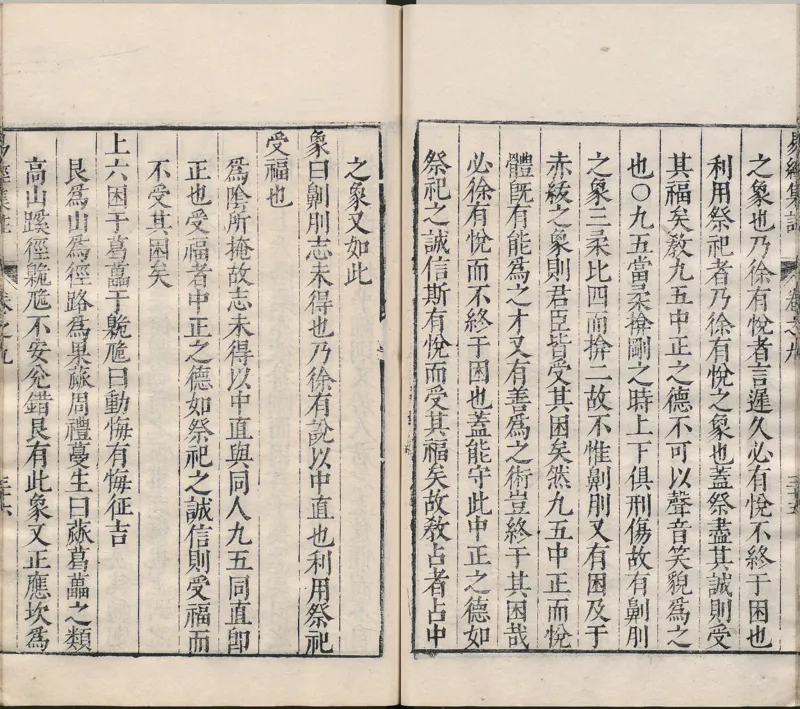 之象也乃徐有悅者言遲久必有悅不終于困也
利用祭祀者乃徐有悅之象也蓋祭盡其誠則受
其福矣教九五中正之德不可以聲音笑貌為之
也〇九五當柔揜剛之時上下俱刑傷故有劓刖
之象三柔比四而揜二故不惟劓刖又有困及于
赤紱之象則君臣皆受其困矣然九五中正而悅
體既有能為之才又有善為之術豈終于其困哉
必徐有悅而不終于困也蓋能守此中正之德如
祭祀之誠信斯有悅而受其福矣故教占者占中
之象又如此
象曰劓刖志未得也乃徐有說以中直也利用祭祀
受福也
為陰所掩故志未得以中直與同人九五同直即
正也受福者中正之德如祭祀之誠信則受福而
不受其困矣
上六困于葛藟于臲卼曰動悔有悔征吉
艮為山為徑路為果蓏周禮蔓生曰蓏葛藟之類
高山蹊徑臲卼不安兌錯艮有此象又正應坎為